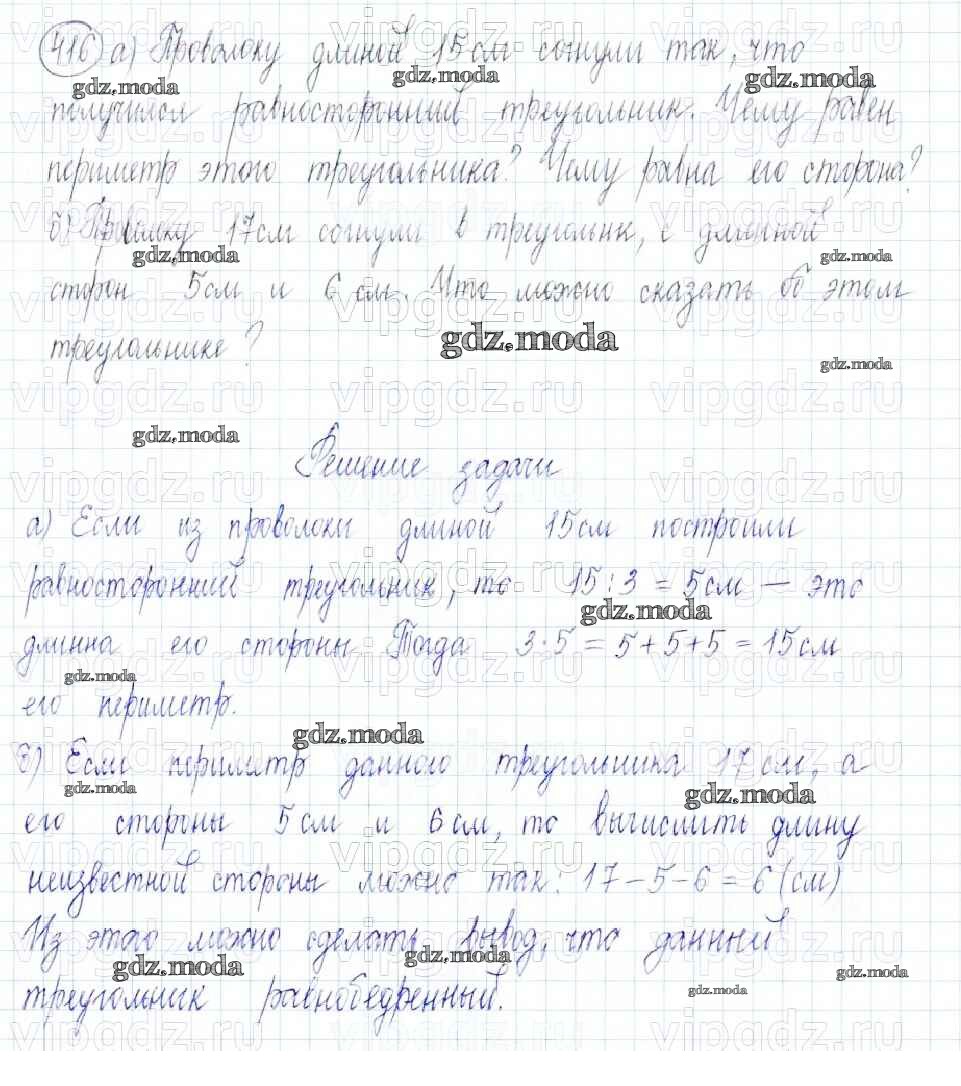 416 а) Проволоку длиной 15 см согнули так, что
получился равносторонний треугольник. Чему равен
периметр этого треугольника? Чему равна его сторона?
б) Проволоку 17см согнули в треугольник, с длинной
сторон 5см и 6 см. Что можно сказать об этом
треугольнике?
Решение задачи
а) Если из проволоки длиной 15см построили
равносторонний треугольник, то 15 : 3 = 5см — это
длинна его стороны. Тогда 3·5 = 5+5+5 = 15см
его периметр.
б) Если периметр данного треугольника 17см, а
его стороны 5см и 6см, то вычислить длину
неизвестной стороны можно так: 17-5-6 = 6 (см)
Из этого можно сделать вывод, что данный
треугольник равнобедренный.
gdz.moda
vipgdz.ru